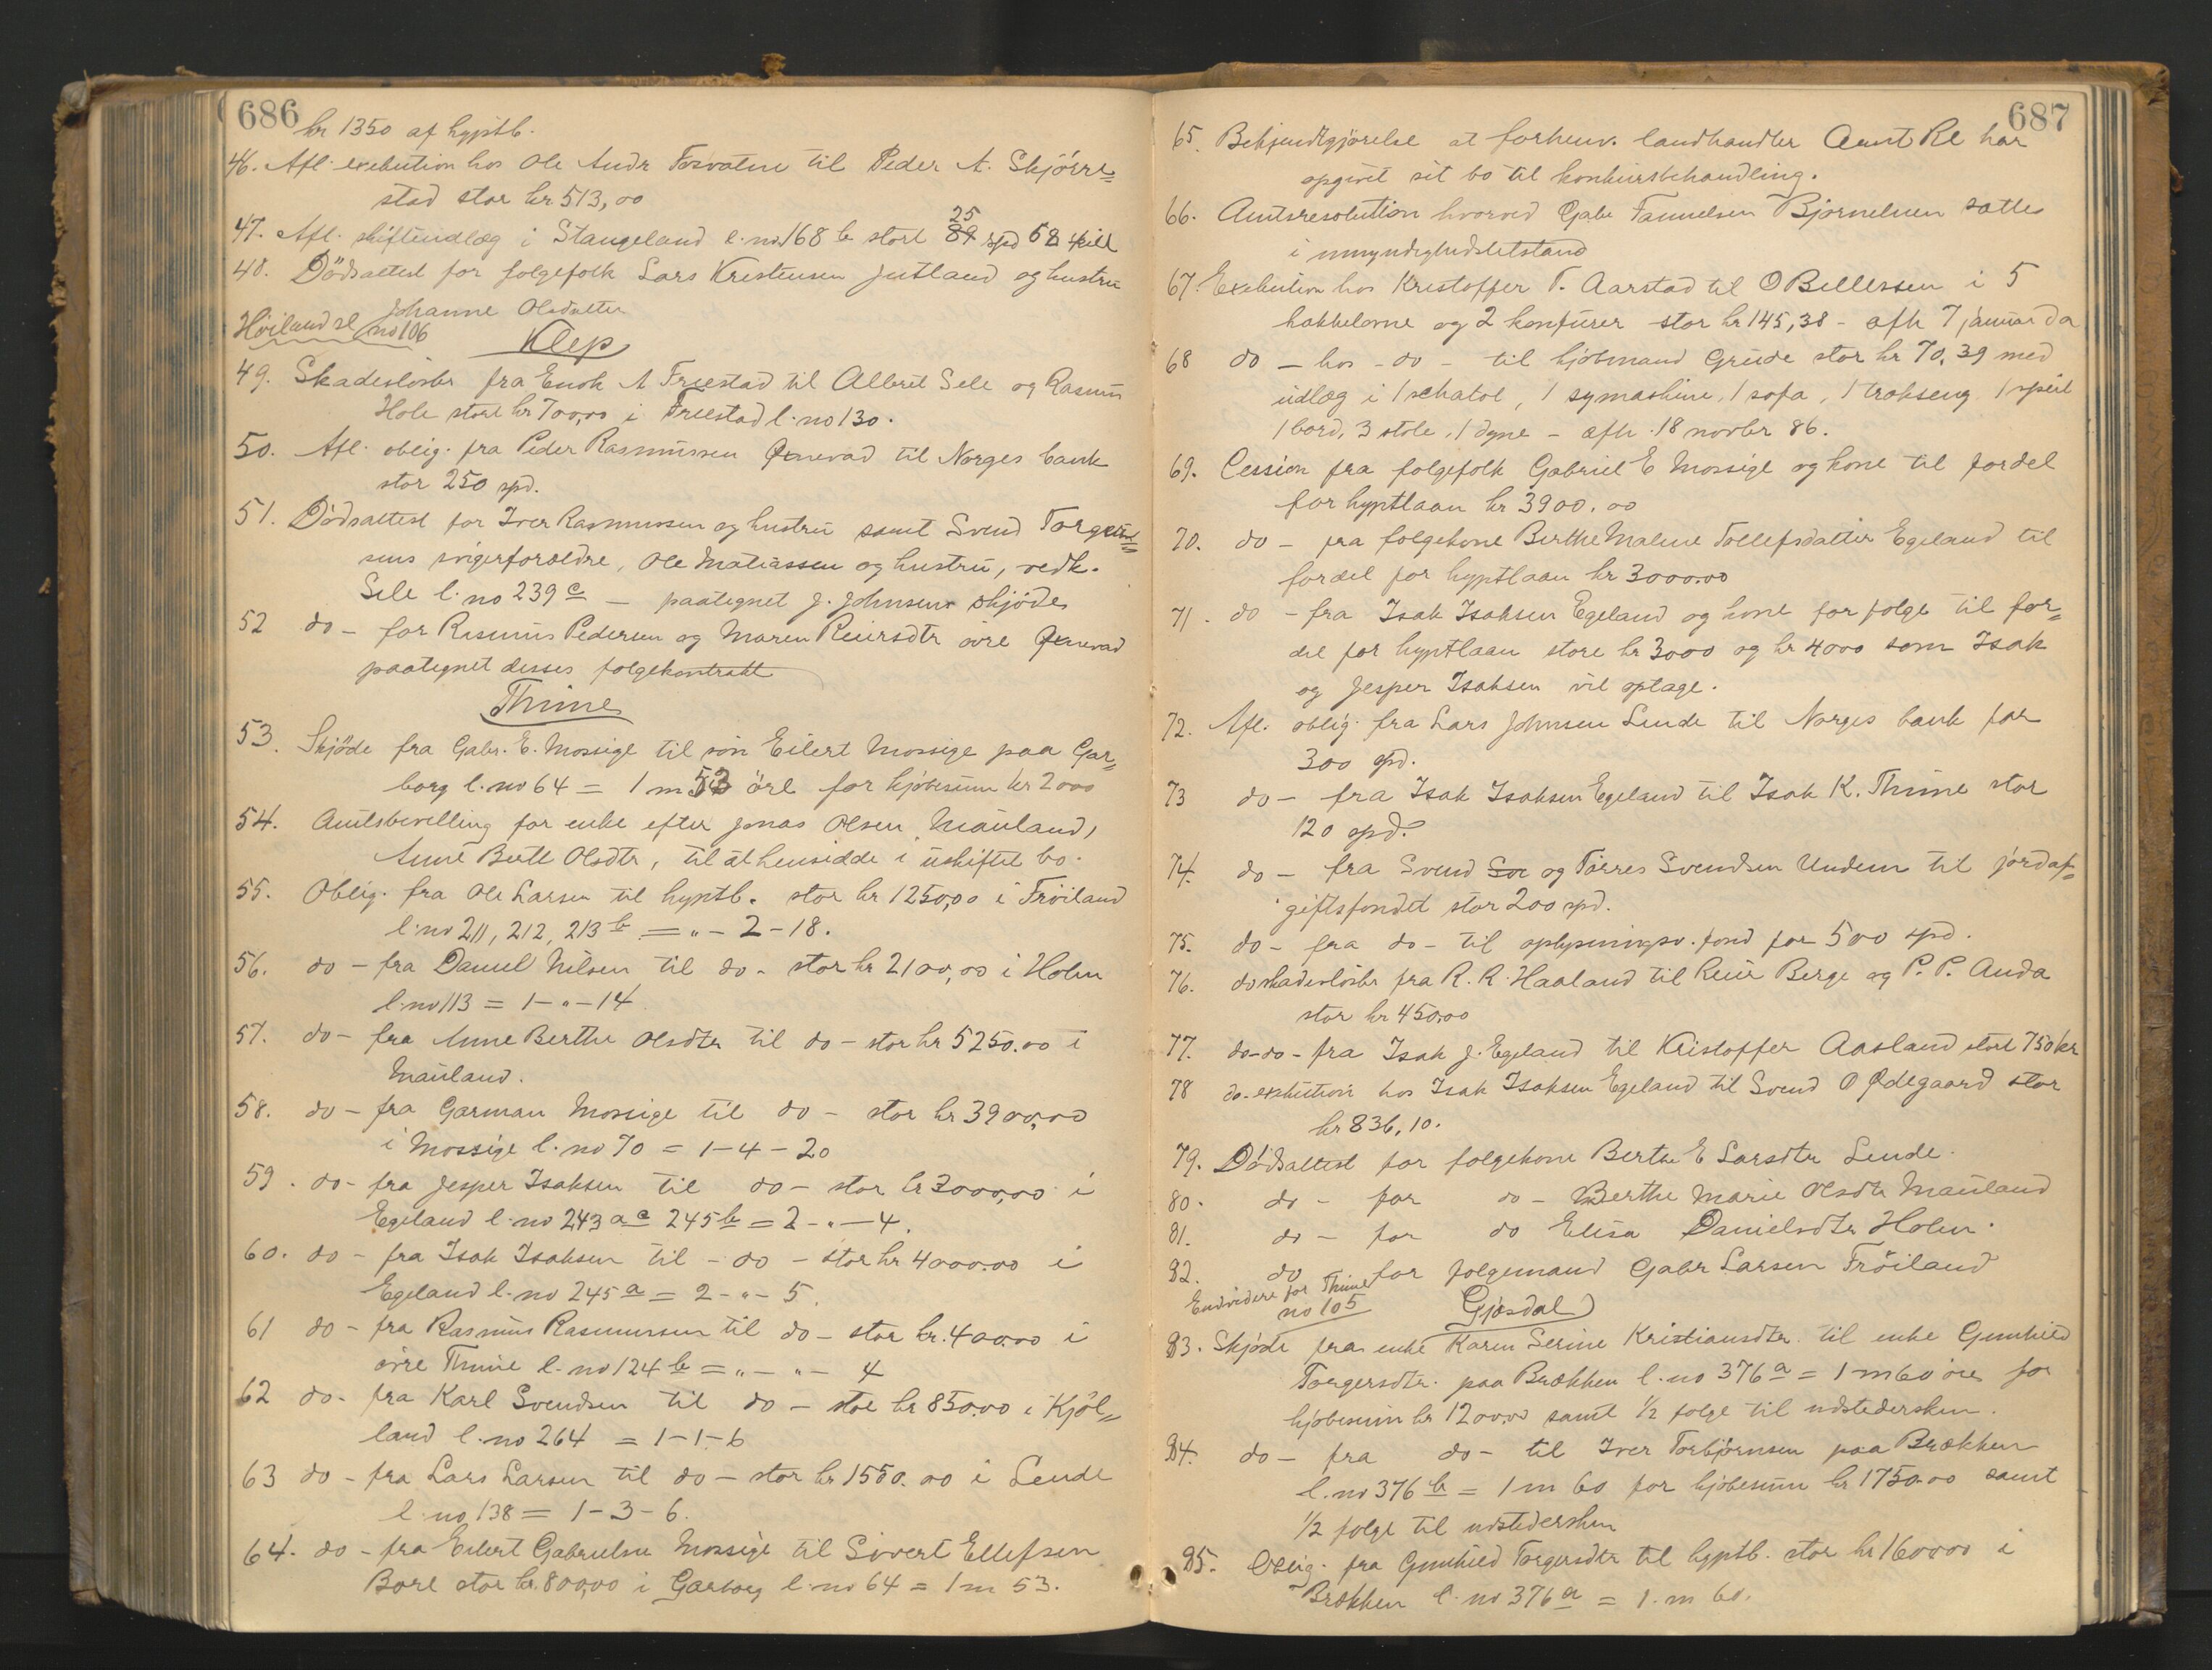 686
kr 1350 af hyptb.
46. Afl. exekution hos Ole Andr Fosvatne til Peder A. Skjörre=
stad stor kr 513,00
47. Afl. skifteudlæg i Stangeland l.no 168 b stort 25 spd 58 skill
48. Dödsattest for folgefolk Lars Kristensen Jutland og hustru
Johanne Olsdatter
Höiland se no 106
Klep
49. Skadeslösbr fra Enok A Freestad til Albret Sele og Rasmus
Hole stort kr 700,00 i Freestad l.no 130.
50. Afl. oblig. fra Peder Rasmussen Qvnevad til Norges bank
stor 250 spd.
51. Dödsattest for Iver Rasmussen og hustru samt Svend Torger=
sens svigerforældre, Ole Matiassen og hustru, vedk.
Sele l.no 239 c — paategnet J. Johnsens skjöde
52 do – for Rasmus Pedersen og Maren Reiersdtr övre Qvnevad
paategnet desses folgekontrakt
Thime
53. Skjöde fra Gabr. E. Mossige til sön Eilert Mossige paa Gar=
borg l.no 64 = 1 m 53 öre for kjöbesum kr 2000
54. Amtsbevilling for enke efter Jonas Olsen Mauland,
Anne Berte Olsdtr, til at hensidde i uskiftet bo.
55. Oblig. fra Ole Larsen til hyptb. stor kr 1250,00 i Fröiland
l.no 211, 212, 213 b = „ – 2 – 18.
56. do – fra Daniel Nilsen til do – stor kr 2100,00 i Holen
l.no 113 = 1 – „ – 14
57. do – fra Anne Berthe Olsdtr til do – stor kr 5250.00 i
Mauland.
58. do – fra Garman Mossige til do – stor kr 3900,00
i Mossige l.no 70 = 1 – 4 – 20
59. do – fra Jesper Isaksen til do – stor kr 3000,00 i
Egeland l.no 243 a c 245 b = 2 – „ – 4.
60. do – fra Isak Isaksen til – do – stor kr 4000.00 i
Egeland l.no 245 a = 2 – „ – 5.
61 do – fra Rasmus Rasmussen til do – stor kr. 400.00 i
övre Thime l.no 124 b = „ – „ – 4
62 do – fra Karl Svendsen til do – stor kr 850.00 i Kjöl=
land l.no 264 = 1 – 1 – 6
63 do – fra Lars Larsen til do – stor kr 1550.00 i Lende
l.no 138 = 1 – 3 – 6.
64. do – fra Eilert Gabrielsen Mossige til Sivert Ellefsen
Bore stor kr. 800,00 i Garborg l.no 64 = 1 m 53.
687
65. Bekjendtgjörelse at forhenv. landhandler Aant Re har
opgivet sit bo til konkursbehandling.
66. Amtsresolution hvorved Gabr Bjornelsen sættes
i umyndighedstilstand
67. Exekution hos Kristoffer T. Aarstad til O Bellessen i 5
kakkelovne og 2 komfurer stor kr 145,38 – afh 7 januar da
68 do – hos – do – til kjöbmand Grude stor kr 70,39 med
udlæg i 1 schatol, 1 symaskine, 1 sofa, 1 trækseng 1 speil
1 bord, 3 stole, 1 dyne – afh. 18 novbr 86.
69. Cession fra folgefolk Gabriel E Mossige og kone til fordel
for hyptlaan kr 3900.00
70. do – fra folgekone Berthe Malene Tollefsdatter Egeland til
fordel for hyptlaan kr 3000.00
71. do – fra Isak Isaksen Egeland og kone for folge til for=
del for hyptlaan store kr 3000 og kr 4000 som Isak
og Jesper Isaksen vil optage.
72. Afl. oblig. fra Lars Johnsen Lende til Norges bank for
300 spd.
73 do – fra Isak Isaksen Egeland til Isak K. Thime stor
120 spd.
74. do – fra Svend Sve og Törres Svendsen Undem til jordaf=
giftsfondet stor 200 spd.
75. do – fra do – til oplysningsv. fond for 500 spd.
76. do skadeslösbr fra R. R. Haaland til Reier Berge og P. P. Anda
stor kr 450,00
77. do – do – fra Isak J. Egeland til Kristoffer Aasland stort 750 kr
78 do – exekution hos Isak Isaksen Egeland til Svend O Ødegaard stor
kr 836,10.
79. Dödsattest for folgekone Berthe E Larsdtr Lende.
80. do – for do – Berthe Marie Olsdtr Mauland
81. do – for do Elisa Danielsdtr Holen.
82. do for folgemand Gabr Larsen Fröiland
Endvidere for Thime
no 105
Gjesdal
83. Skjöde fra enke Karen Serine Kristiansdtr til enke Gunhild
Torgersdtr. paa Brækken l.no 376 a = 1 m 60 öre for
kjöbesum kr 1200.00 samt ½ folge til udstedersken.
84. do – fra do – til Iver Torbjörnsen paa Brækken
l.no 376 b = 1 m 60 for kjöbesum kr 1750.00 samt
½ folge til udstedersken
85. Oblig. fra Gunhild Torgersdtr til hyptb. stor kr 1600.00 i
Brækken l.no 376 a = 1 m 60.